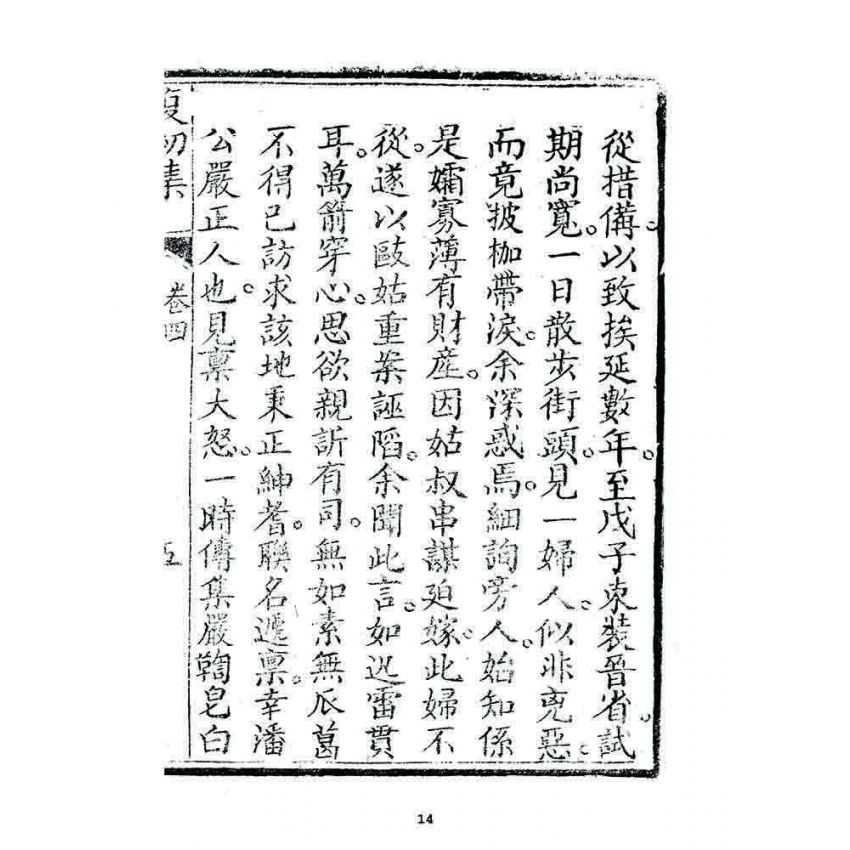 從措備。以致挨延數年。至戊子束裝晉省。試
期尚寬。一日散步街頭。見一婦人。似非兇惡。
而竟披枷帶淚。余深惑焉。細詢旁人。始知係
是孀寡薄有財產。因姑叔串謀廹嫁。此婦不
從。遂以毆姑重案誣陷。余聞此言。如迅雷貫
耳。萬箭穿心。思欲親訴有司。無如素無瓜葛。
不得已訪求該地秉正紳耆。聯名遞稟。幸潘
公嚴正人也。見稟大怒。一時傳集嚴鞫皂白
復初集
卷四
五
14